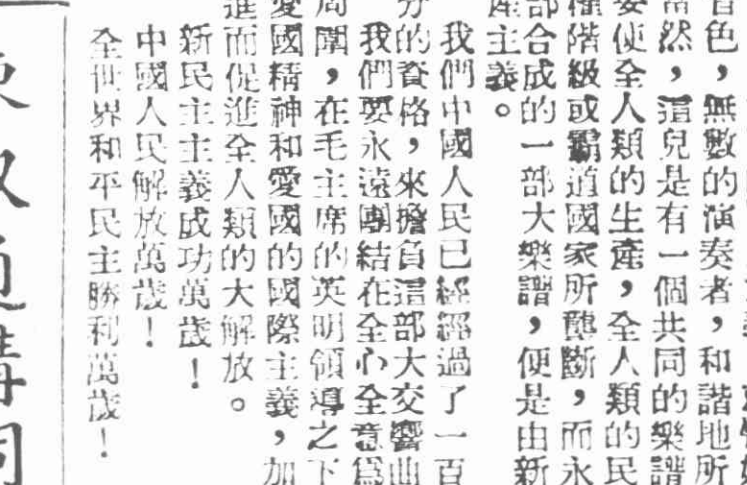 音色，無數的演奏者，和諧地所
當然，這兒是有一個共同的樂譜
要使全人類的生產，全人類的民
權階級或霸道國家所壟斷，而永
部合成的一部大樂譜，便是由新
產主義。
我們中國人民已經經過了一百
分的資格，來擔負這部大交響曲
我們要永遠團結在全心全意爲
周圍，在毛主席的英明領導之下
愛國精神和愛國的國際主義，加
進而促進全人類的大解放。
新民主主義成功萬歲！
中國人民解放萬歲！
全世界和平民主勝利萬歲！
叔通講詞